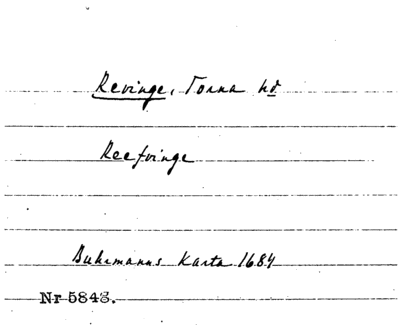 Revinge, Torna hd
Reefvinge
Buhrmanns Karta 1684
Nr 5843.